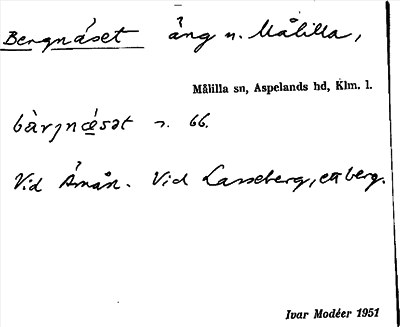 Bergnäset äng n. Målilla,
Målilla sn, Aspelands hd, Klm. l.
bàrjnǽsət n. 66.
Vid Åmån. Vid Lasseberg, ett berg.
Ivar Modéer 1951